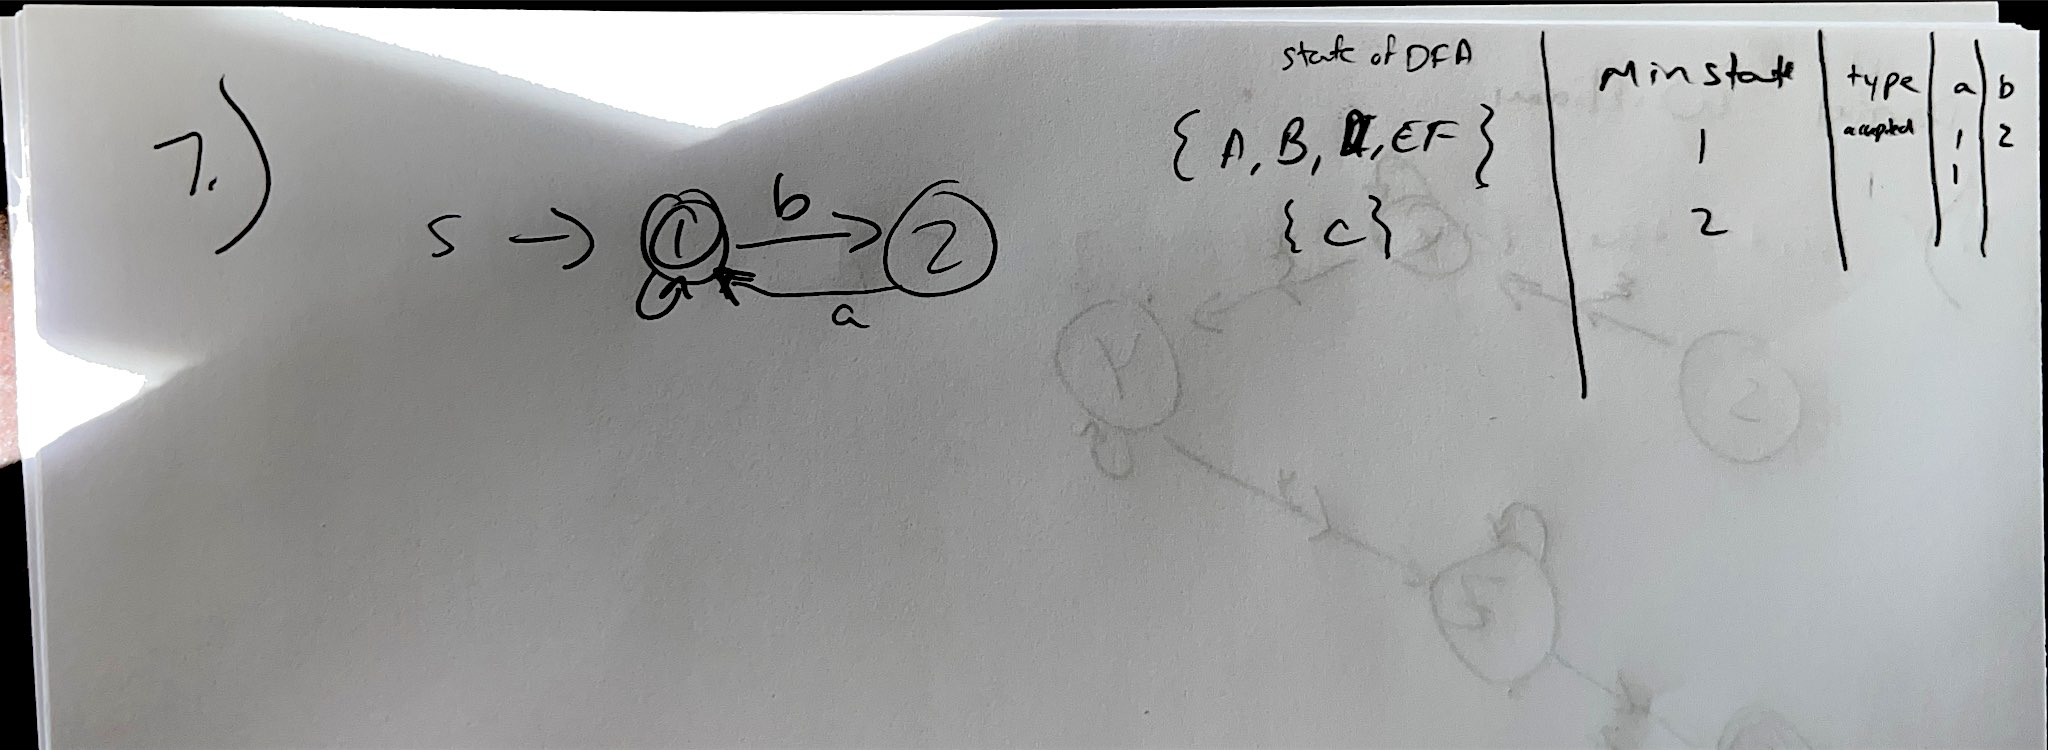 7.)
S → 1 b 2
a
a
state of DFA | Min state | type | a | b
{ A, B, , EF } | 1 | accepted | 1 | 2
{ C } | 2 | | 1 |